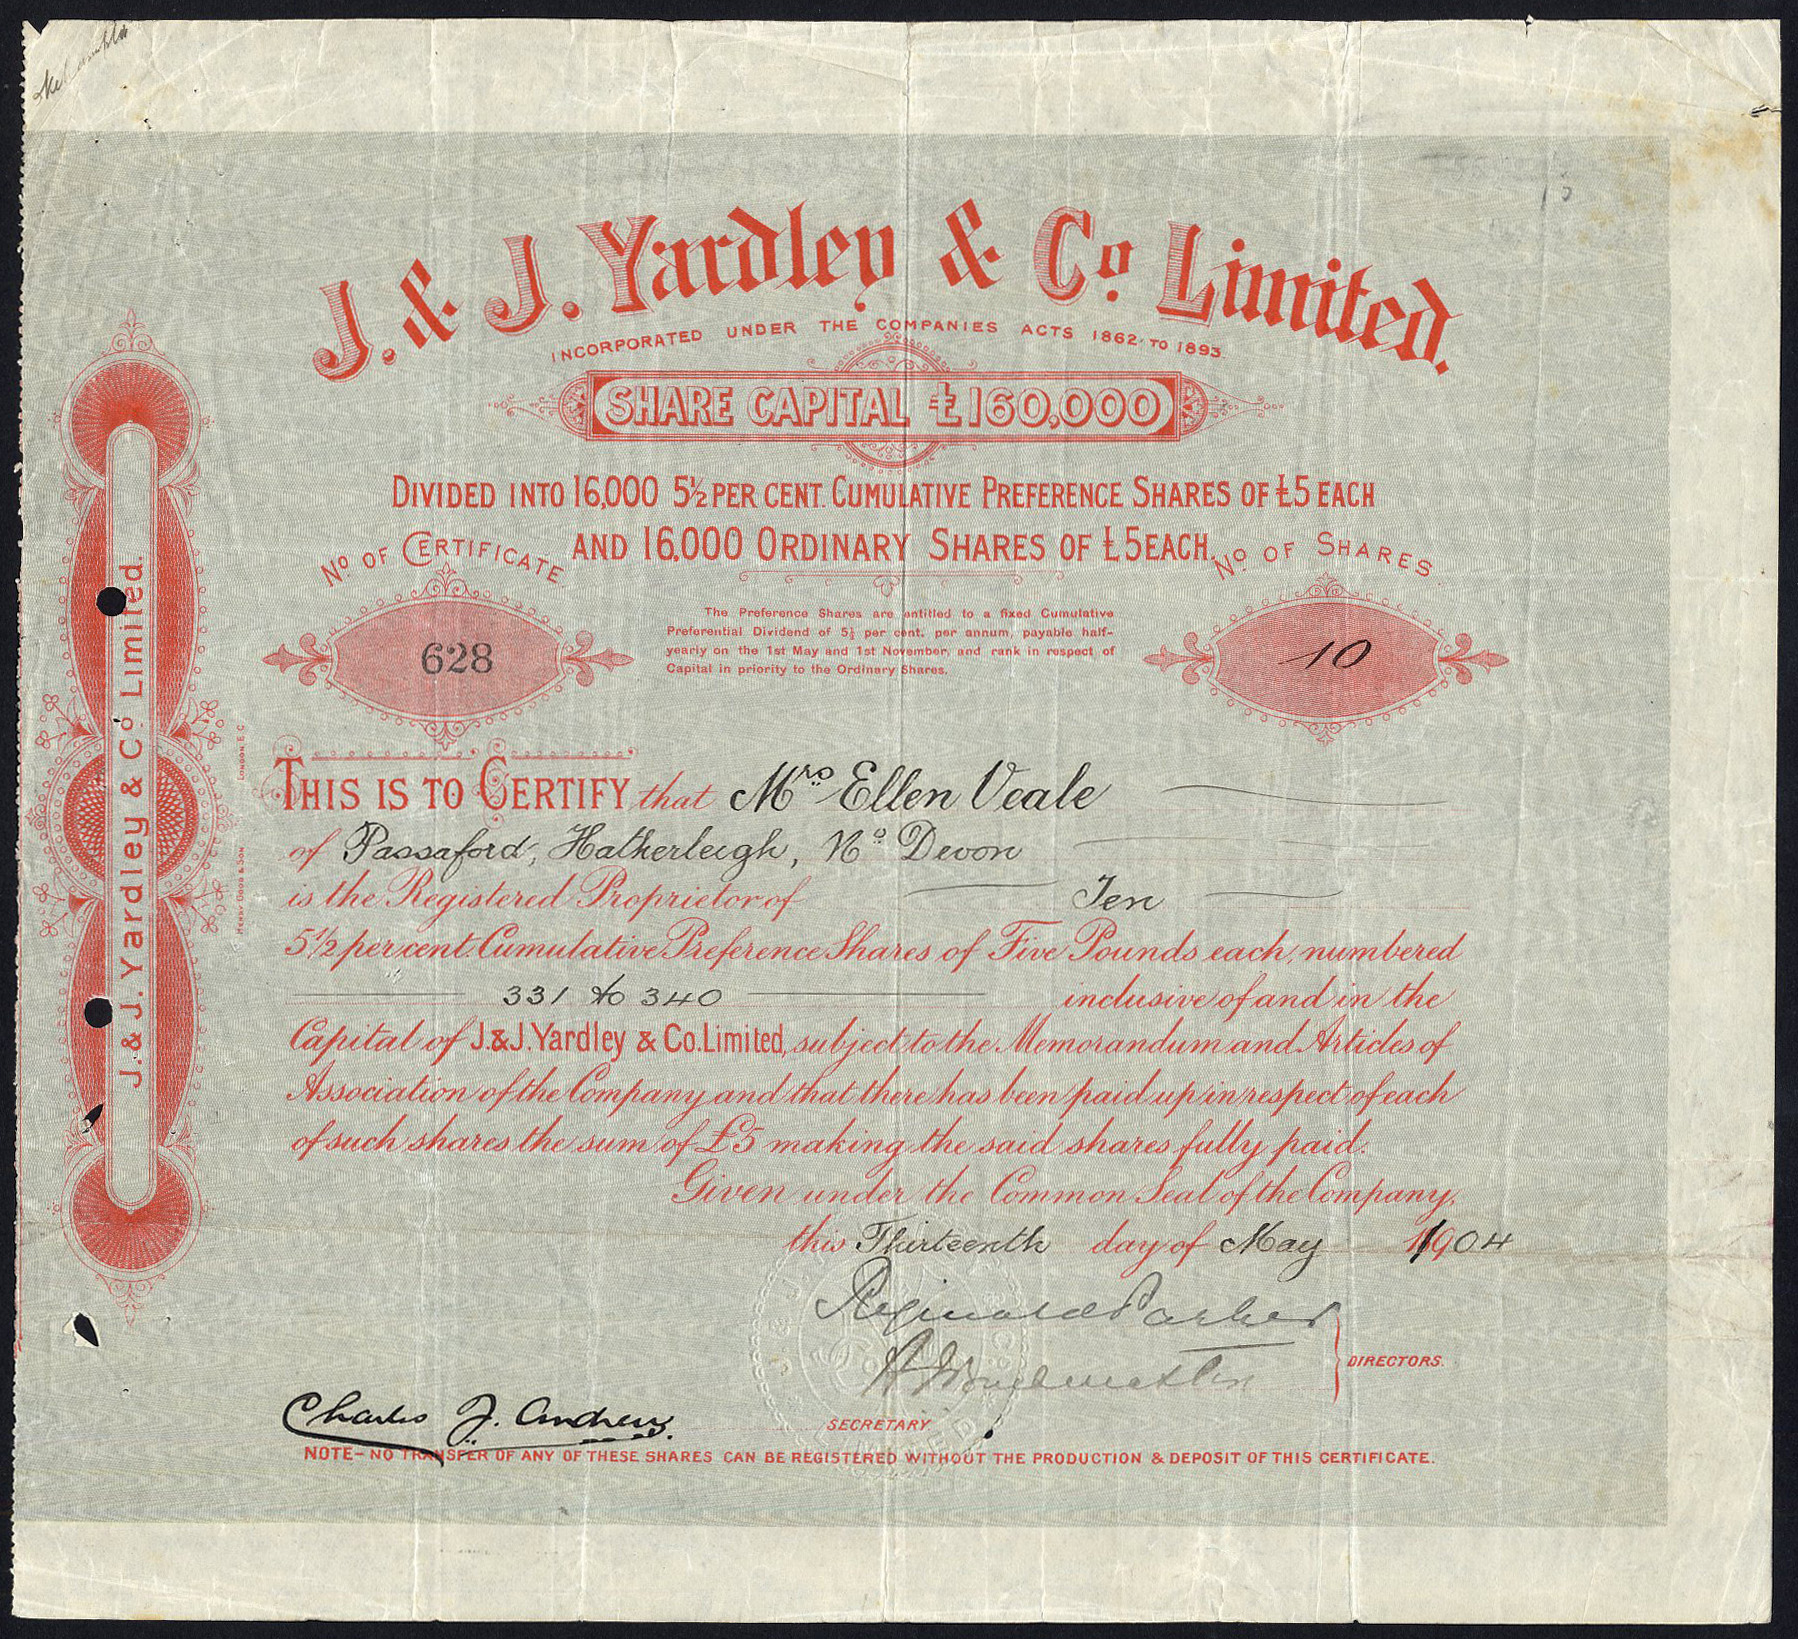 J. & J. Yardley & Co. Limited.
INCORPORATED UNDER THE COMPANIES ACTS 1862 TO 1893.
SHARE CAPITAL £160,000
DIVIDED INTO 16,000 5½ PER CENT. CUMULATIVE PREFERENCE SHARES OF £5 EACH
AND 16,000 ORDINARY SHARES OF £5 EACH.
No OF CERTIFICATE.
628
The Preference Shares are entitled to a fixed Cumulative
Preferential Dividend of 5½ per cent. per annum, payable half-
yearly on the 1st May and 1st November, and rank in respect of
Capital in priority to the Ordinary Shares.
No OF SHARES.
10
THIS IS TO CERTIFY that Mrs Ellen Veale
of Passaford, Hatherleigh, No Devon
is the Registered Proprietor of Ten
5½ per cent. Cumulative Preference Shares of Five Pounds each, numbered
331 to 340 inclusive of and in the
Capital of J. & J. Yardley & Co. Limited, subject to the Memorandum and Articles of
Association of the Company and that there has been paid up in respect of each
of such shares the sum of £5 making the said shares fully paid.
Given under the Common Seal of the Company,
this Thirteenth day of May 1904
Reginald Parker
DIRECTORS.
Charles J. Andrew.
SECRETARY
NOTE – NO TRANSFER OF ANY OF THESE SHARES CAN BE REGISTERED WITHOUT THE PRODUCTION & DEPOSIT OF THIS CERTIFICATE.
J. & J. Yardley & Co Limited.
HENRY GOOD & SON LONDON E.C